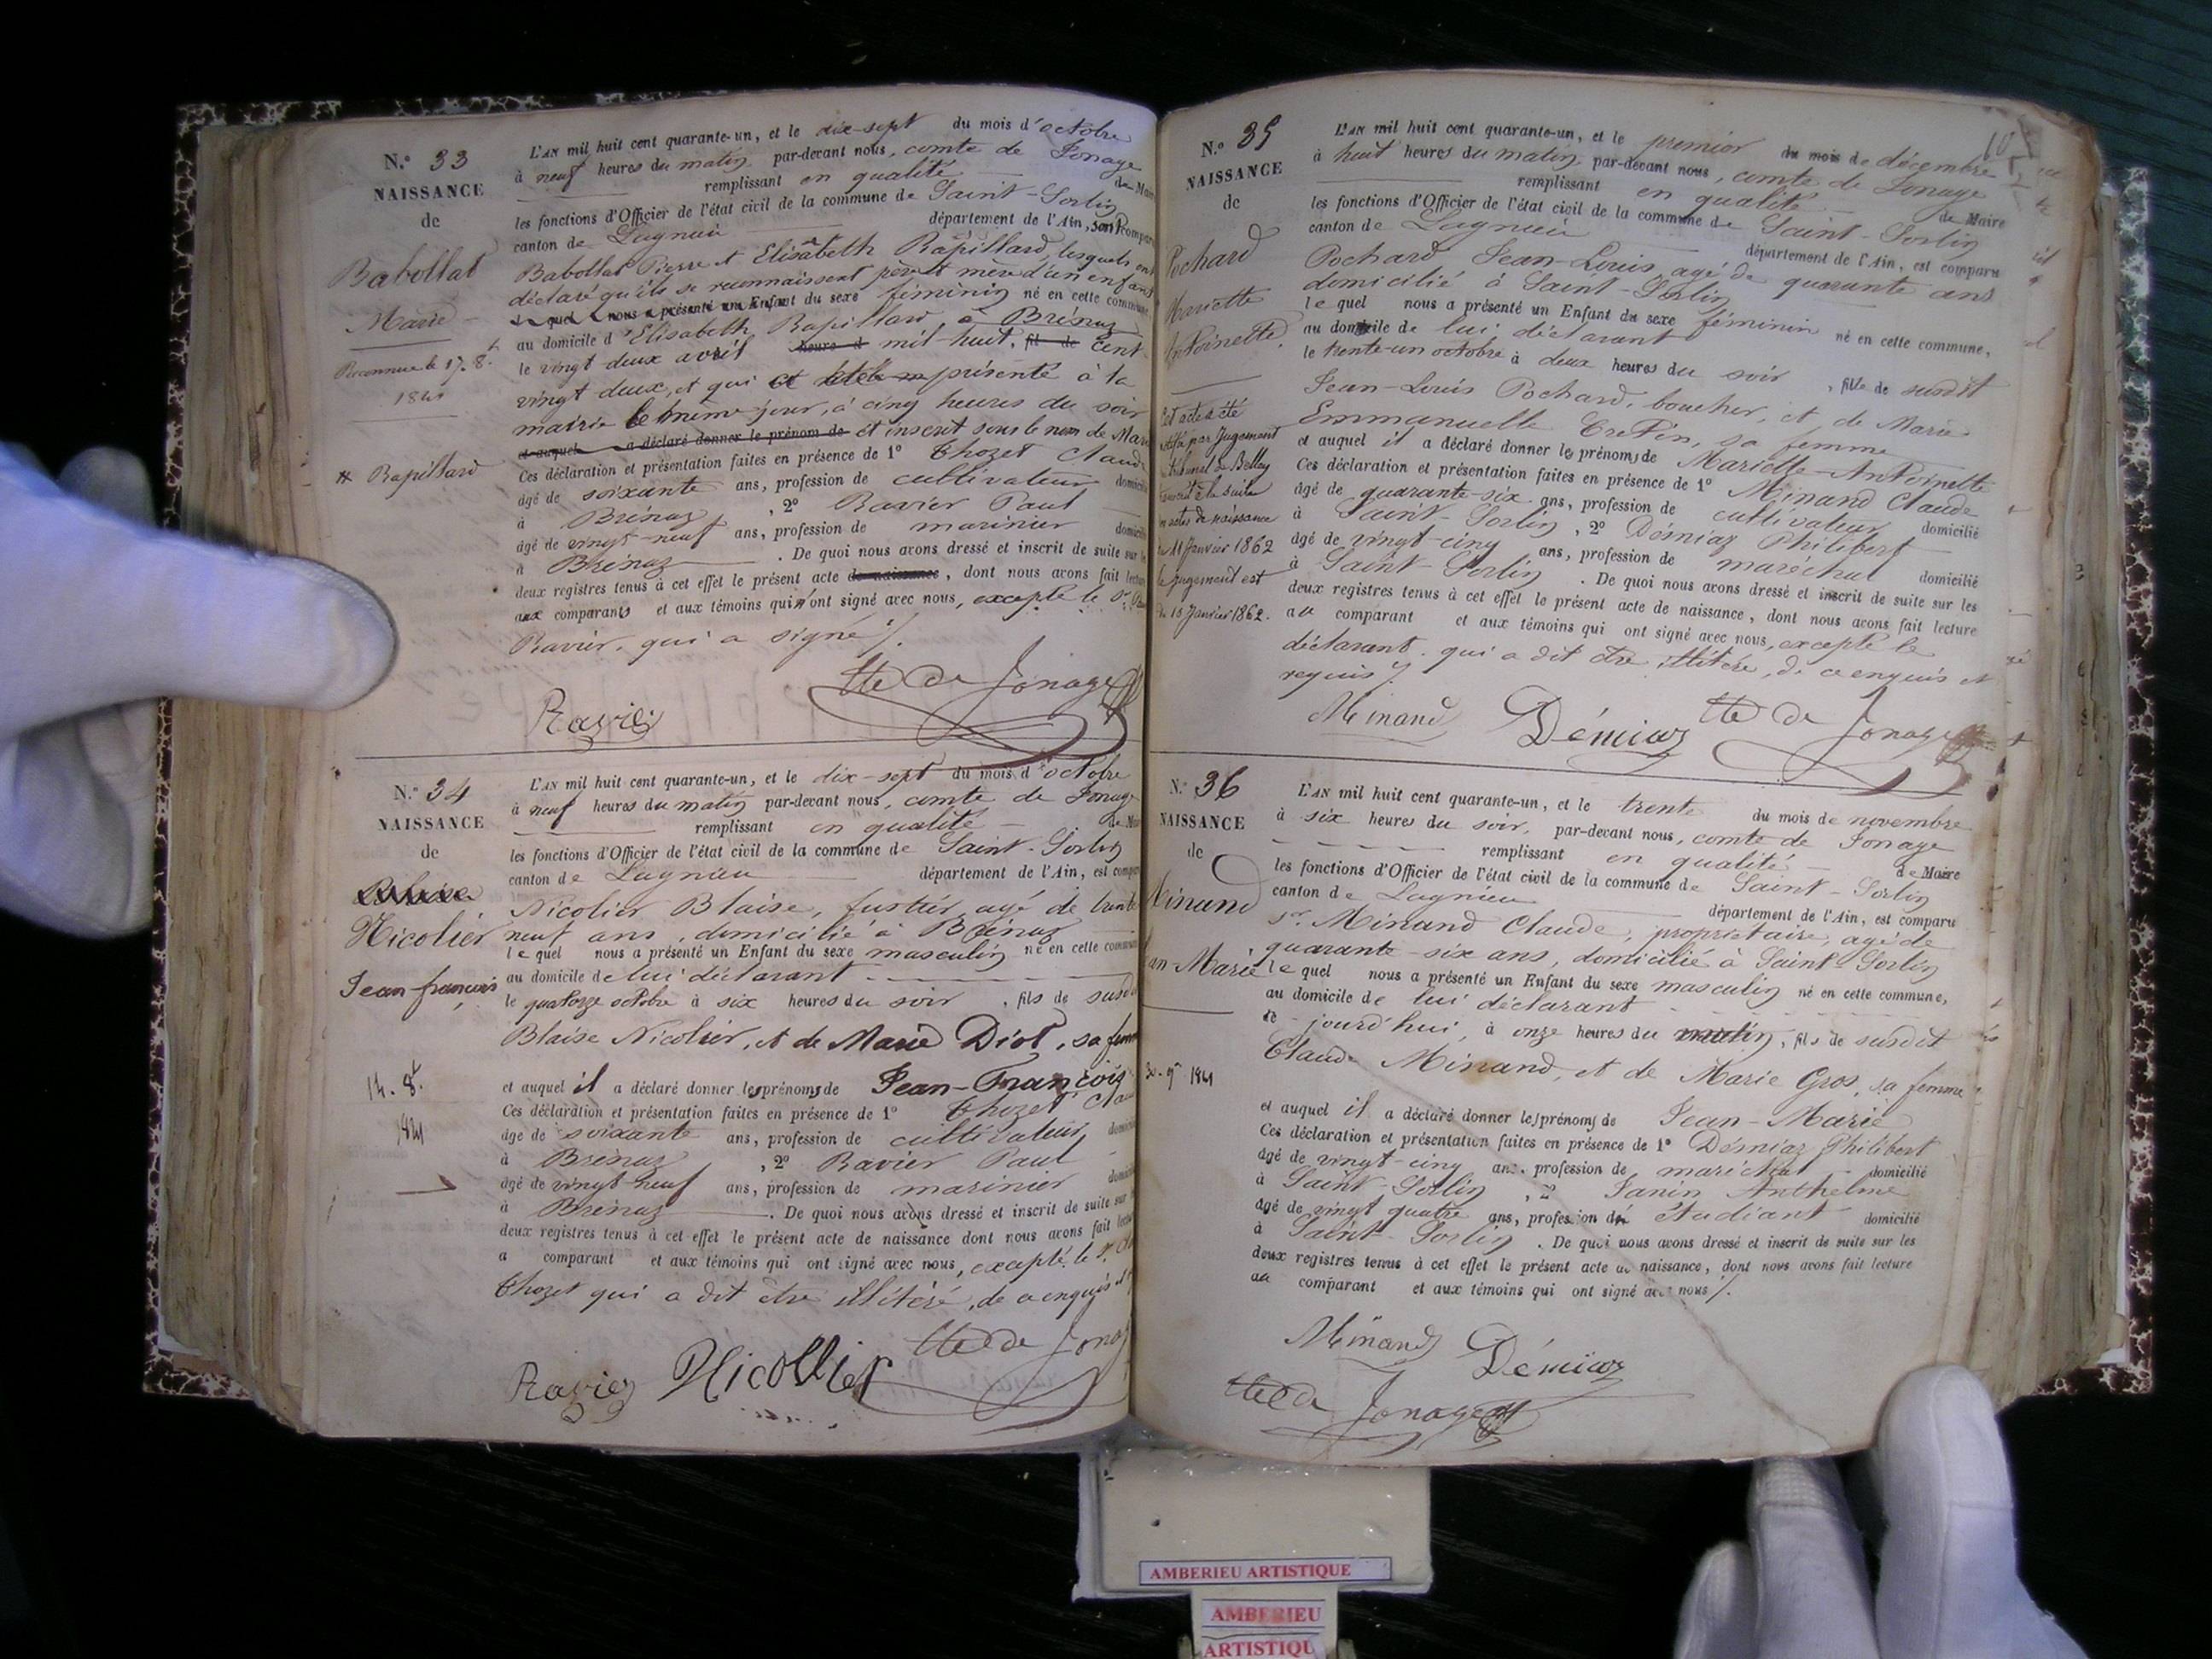 N.° 33
NAISSANCE
de
Babollat
Marie
Reconnue le 17. 8.t
1841
# Rapillard
L'AN mil huit cent quarante-un, et le dix-sept du mois d'octobre
à neuf heures du matin par-devant nous, comte de Jonage
remplissant en qualité de Mai
les fonctions d'Officier de l'état civil de la commune de Saint-Sorlin
canton de Lagnieu département de l'Ain, sont compar
Babollat Pierre et Elisabeth Rapillard, lesquels ont
déclaré qu'ils se reconnaissent père et mère d'un enfant
quel nous a présenté un Enfant du sexe féminin né en cette commune
au domicile d'Elisabeth Rapillard à Brénaz
le vingt deux avril heure d mil-huit. fil de cent
vingt deux, et qui a été présenté à la
mairie le même jour, à cinq heures du soir
et auquel a déclaré donner le prénom de et inscrit sous le nom de Mari
Ces déclaration et présentation faites en présence de 1° Chozet Claude
âgé de soixante ans, profession de cultivateur domicilié
à Brénaz, 2° Ravier Paul
âgé de vingt-neuf ans, profession de marinier domicilié
à Brénaz. De quoi nous avons dressé et inscrit de suite sur le
deux registres tenus à cet effet le présent acte de naissance, dont nous avons fait lecture
aux comparants et aux témoins qui n'ont signé avec nous, excepté le Sr
Ravier, qui a signé /.
Ravier
Cte de Jonage
N.° 34
NAISSANCE
de
Blaise
Nicolier
Jean-françois
14. 8.t
1841
L'AN mil huit cent quarante-un, et le dix-sept du mois d'octobre
à neuf heures du matin par-devant nous, comte de Jonage
remplissant en qualité de Mai
les fonctions d'Officier de l'état civil de la commune de Saint-Sorlin
canton de Lagnieu département de l'Ain, est compar
Nicolier Blaise, fustier, agé de trente
neuf ans, domicilié à Brénaz
le quel nous a présenté un Enfant du sexe masculin né en cette commun
au domicile de lui déclarant
le quatorze octobre à six heures du soir, fils de susdit
Blaise Nicolier, et de Marie Diot, sa femm
et auquel il a déclaré donner les prénoms de Jean-François
Ces déclaration et présentation faites en présence de 1° Chozet Cla
âgé de soixante ans, profession de cultivateur domicili
à Brénaz, 2° Ravier Paul
âgé de vingt-neuf ans, profession de marinier domicili
à Brénaz. De quoi nous avons dressé et inscrit de suite sur
deux registres tenus à cet effet le présent acte de naissance dont nous avons fait lectu
a comparant et aux témoins qui ont signé avec nous, excepté le Sr
Chozet qui a dit être illétéré, de ce enquis
Ravier Nicollier Cte de Jonag
N.° 35
NAISSANCE
de
Pochard
Mariette
Antoinette.
Cet acte a été
par Jugement
tribunal de Belley
à la suite
actes de naissance
11 Janvier 1862
le jugement est
13 Janvier 1862.
L'AN mil huit cent quarante-un, et le premier du mois de décembre
à huit heures du matin par-devant nous, comte de Jonage
remplissant en qualité de Maire
les fonctions d'Officier de l'état civil de la commune de Saint-Sorlin
canton de Lagnieu département de l'Ain, est comparu
Pochard Jean-Louis, agé de quarante ans
domicilié à Saint-Sorlin
le quel nous a présenté un Enfant du sexe féminin né en cette commune,
au domicile de lui déclarant
le trente-un octobre à deux heures du soir, fille de susdit
Jean-Louis Pochard, boucher, et de Marie
Emmanuelle Crepin, sa femme
et auquel il a déclaré donner les prénoms de Mariette-Antoinette
Ces déclaration et présentation faites en présence de 1° Minand Claude
âgé de quarante-six ans, profession de cultivateur domicilié
à Saint-Sorlin, 2° Démiaz Philibert
âgé de vingt-cinq ans, profession de maréchal domicilié
à Saint-Sorlin. De quoi nous avons dressé et inscrit de suite sur les
deux registres tenus à cet effet le présent acte de naissance, dont nous avons fait lecture
au comparant et aux témoins qui ont signé avec nous, excepté le
déclarant qui a dit être illétéré, de ce enquis et
requis /.
Minand Démiaz Cte de Jonage
N.° 36
NAISSANCE
de
Minand
Jean-Marie
30. 9.re 1841
L'AN mil huit cent quarante-un, et le trente du mois de novembre
à six heures du soir, par-devant nous, comte de Jonage
remplissant en qualité de Maire
les fonctions d'Officier de l'état civil de la commune de Saint-Sorlin
canton de Lagnieu département de l'Ain, est comparu
sr. Minand Claude, propriétaire, agé de
quarante-six ans, domicilié à Saint-Sorlin
le quel nous a présenté un Enfant du sexe masculin né en cette commune,
au domicile de lui déclarant
ce-jourd'hui, à onze heures du matin, fils de susdit
Claude Minand, et de Marie Gros, sa femme
et auquel il a déclaré donner les prénoms de Jean-Marie
Ces déclaration et présentation faites en présence de 1° Démiaz Philibert
âgé de vingt-cinq ans, profession de maréchal domicilié
à Saint-Sorlin, 2° Janin Anthelme
âgé de vingt quatre ans, profession d'étudiant domicilié
à Saint-Sorlin. De quoi nous avons dressé et inscrit de suite sur les
deux registres tenus à cet effet le présent acte de naissance, dont nous avons fait lecture
au comparant et aux témoins qui ont signé avec nous /.
Minand Démiaz
Cte de Jonage
AMBERIEU ARTISTIQUE
AMBERIEU
ARTISTIQU